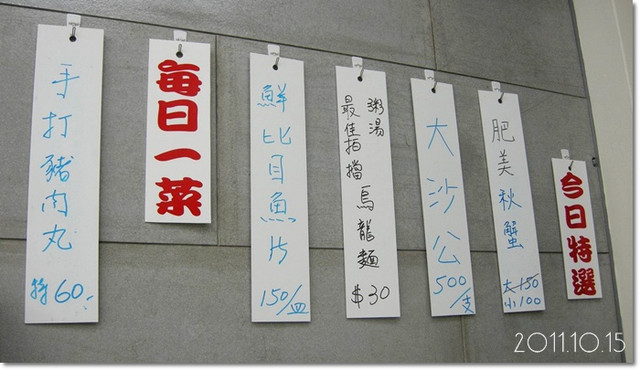 手打豬肉丸
特60.-
每日一菜
鮮比目魚片
150/皿
粥湯
最佳拍擋烏龍麵
$30
大沙公
500/支
肥美秋蟹
大150
小100
今日特選
2011.10.15